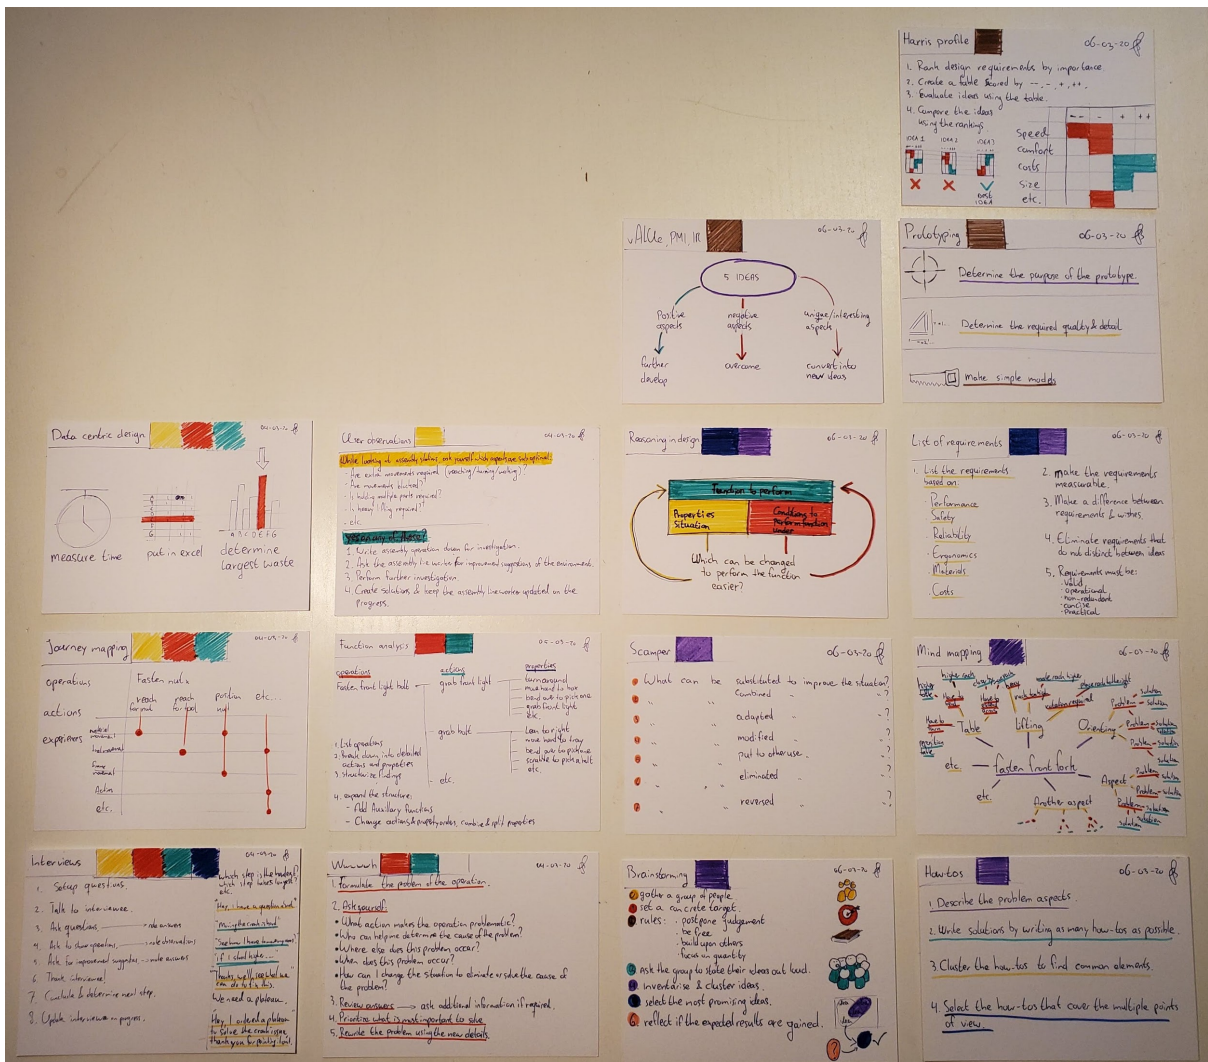 Harris profile
06-03-20
1. Rank design requirements by importance.
2. Create a table scored by --, -, +, ++.
3. Evaluate ideas using the table.
4. Compare the ideas
using the rankings
-- - + ++
Speed
comfort
costs
size
etc.
IDEA 1 IDEA 2 IDEA 3
BEST
IDEA
vALUe, PMI, IR
06-03-20
5 IDEAS
Positive
aspects
negative
aspects
unique/interesting
aspects
further
develop
overcome
convert into
new ideas
Prototyping
06-03-20
Determine the purpose of the prototype.
Determine the required quality & detail
Make simple models
Data centric design
04-03-20
measure time
put in excel
A B C D E F G
determine
largest waste
User observations
04-03-20
While looking at assembly stations, ask yourself which aspects are sub optimal:
- Are extra movements required (reaching/turning/walking)?
- Are movements blocked?
- Is holding multiple parts required?
- Is heavy lifting required?
- etc.
Yes on any of these?
1. Write assembly operation down for investigation.
2. Ask the assembly line worker for improvement suggestions of the environment.
3. Perform further investigation.
4. Create solutions & keep the assembly line worker updated on the
progress.
Reasoning in design
06-03-20
Function to perform
Properties
Situation
Conditions to
perform function
under
Which can be changed
to perform the function
easier?
List of requirements
06-03-20
1. List the requirements
based on:
- Performance
- Safety
- Reliability
- Ergonomics
- Materials
- Costs
2. make the requirements
measurable.
3. Make a difference between
requirements & wishes.
4. Eliminate requirements that
do not distinct between ideas
5. Requirements must be:
- valid
- operational
- non-redundant
- concise
- practical
Journey mapping
04-03-20
operations
Fasten nut x
actions
reach
for nut
reach
for tool
position
nut
etc...
Action
etc.
Function analysis
05-03-20
operations
actions
properties
Fasten front light bolt
grab front light
turn around
move hand to box
bend over to pick one
grab front light
etc.
grab bolt
Lean to right
move hand to tray
bend over to pick one
etc.
etc.
1. List operations
2. Break down into detailed
actions and properties
3. Structurize findings
4. expand the structure:
- Add Auxillary functions
- Change actions & property orders, combine & split properties
Scamper
06-03-20
What can be substituted to improve the situation?
" " Combined " ?
" " adapted " ?
" " modified " ?
" " put to other use " ?
" " eliminated " ?
" " reversed " ?
Mind mapping
06-03-20
fasten front fork
Table
Lifting
Orienting
rotation required
Problem
solution
Problem
solution
Problem
solution
Aspect
Problem
solution
Problem
solution
Problem
solution
solution
Another aspect
etc.
etc.
Interviews
04-03-20
1. Setup questions.
2. Talk to interviewee.
3. Ask questions note answers
4. Ask to show operations note observations
5. Ask for improvement suggestion note answers
6. Thank interviewee!
7. Conclude & determine next step.
8. Update interviewee on progress.
which step is the hardest?
which step takes longest?
etc.
"Hey, I have a question about"
We need a plateau.
"Hey, I ordered a plateau"
to solve the issue,
thank you for pointing it out.
Wwwwwh
04-03-20
1. Formulate the problem of the operation.
2. Ask yourself:
• What action makes the operation problematic?
• Who can help me determine the cause of the problem?
• Where else does this problem occur?
• When does this problem occur?
• How can I change the situation to eliminate or solve the cause of
the problem?
3. Review answers ask additional information if required.
4. Prioritize what is most important to solve
5. Rewrite the problem using the new details.
Brainstorming
06-03-20
gather a group of people
set a concrete target.
rules: - postpone judgement
- be free
- build upon others
- focus on quantity
Ask the group to state their ideas out loud.
inventarise & cluster ideas.
select the most promising ideas.
reflect if the expected results are gained.
How-tos
06-03-20
1. Describe the problem aspects.
2. Write solutions by writing as many how-tos as possible.
3. Cluster the how-tos to find common elements.
4. Select the how-tos that cover the multiple points
of view.